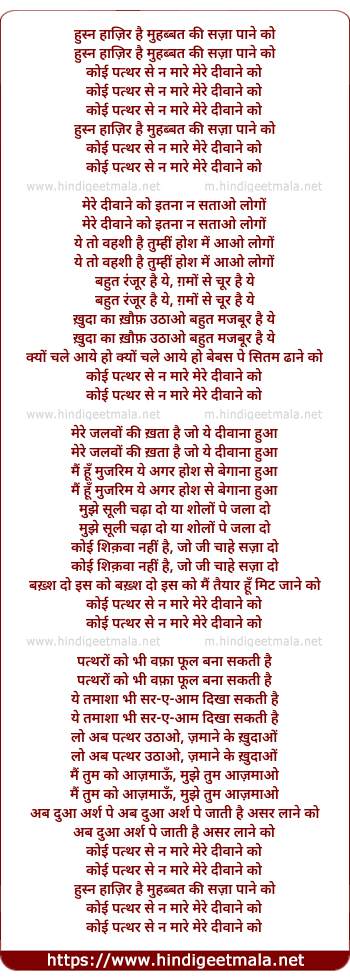 हुस्न हाज़िर है मुहब्बत की सज़ा पाने को
हुस्न हाज़िर है मुहब्बत की सज़ा पाने को
कोई पत्थर से न मारे मेरे दीवाने को
कोई पत्थर से न मारे मेरे दीवाने को
कोई पत्थर से न मारे मेरे दीवाने को
हुस्न हाज़िर है मुहब्बत की सज़ा पाने को
कोई पत्थर से न मारे मेरे दीवाने को
कोई पत्थर से न मारे मेरे दीवाने को
www.hindigeetmala.net m.hindigeetmala.net
मेरे दीवाने को इतना न सताओ लोगों
मेरे दीवाने को इतना न सताओ लोगों
ये तो वहशी है तुम्हीं होश में आओ लोगों
ये तो वहशी है तुम्हीं होश में आओ लोगों
बहुत रंजूर है ये, ग़मों से चूर है ये
बहुत रंजूर है ये, ग़मों से चूर है ये
ख़ुदा का ख़ौफ़ उठाओ बहुत मजबूर है ये
ख़ुदा का ख़ौफ़ उठाओ बहुत मजबूर है ये
क्यों चले आये हो क्यों चले आये हो बेबस पे सितम ढाने को
कोई पत्थर से न मारे मेरे दीवाने को
कोई पत्थर से न मारे मेरे दीवाने को
www.hindigeetmala.net m.hindigeetmala.net
मेरे जलवों की ख़ता है जो ये दीवाना हुआ
मेरे जलवों की ख़ता है जो ये दीवाना हुआ
मैं हूँ मुजरिम ये अगर होश से बेगाना हुआ
मैं हूँ मुजरिम ये अगर होश से बेगाना हुआ
मुझे सूली चढ़ा दो या शोलों पे जला दो
मुझे सूली चढ़ा दो या शोलों पे जला दो
कोई शिक़वा नहीं है, जो जी चाहे सज़ा दो
कोई शिक़वा नहीं है, जो जी चाहे सज़ा दो
बख़्श दो इस को बख़्श दो इस को मैं तैयार हूँ मिट जाने को
कोई पत्थर से न मारे मेरे दीवाने को
कोई पत्थर से न मारे मेरे दीवाने को
www.hindigeetmala.net m.hindigeetmala.net
पत्थरों को भी वफ़ा फूल बना सकती है
पत्थरों को भी वफ़ा फूल बना सकती है
ये तमाशा भी सर-ए-आम दिखा सकती है
ये तमाशा भी सर-ए-आम दिखा सकती है
लो अब पत्थर उठाओ, ज़माने के ख़ुदाओं
लो अब पत्थर उठाओ, ज़माने के ख़ुदाओं
मैं तुम को आज़माऊँ, मुझे तुम आज़माओ
मैं तुम को आज़माऊँ, मुझे तुम आज़माओ
अब दुआ अर्श पे अब दुआ अर्श पे जाती है असर लाने को
अब दुआ अर्श पे जाती है असर लाने को
कोई पत्थर से न मारे मेरे दीवाने को
कोई पत्थर से न मारे मेरे दीवाने को
हुस्न हाज़िर है मुहब्बत की सज़ा पाने को
कोई पत्थर से न मारे मेरे दीवाने को
कोई पत्थर से न मारे मेरे दीवाने को
https://www.hindigeetmala.net